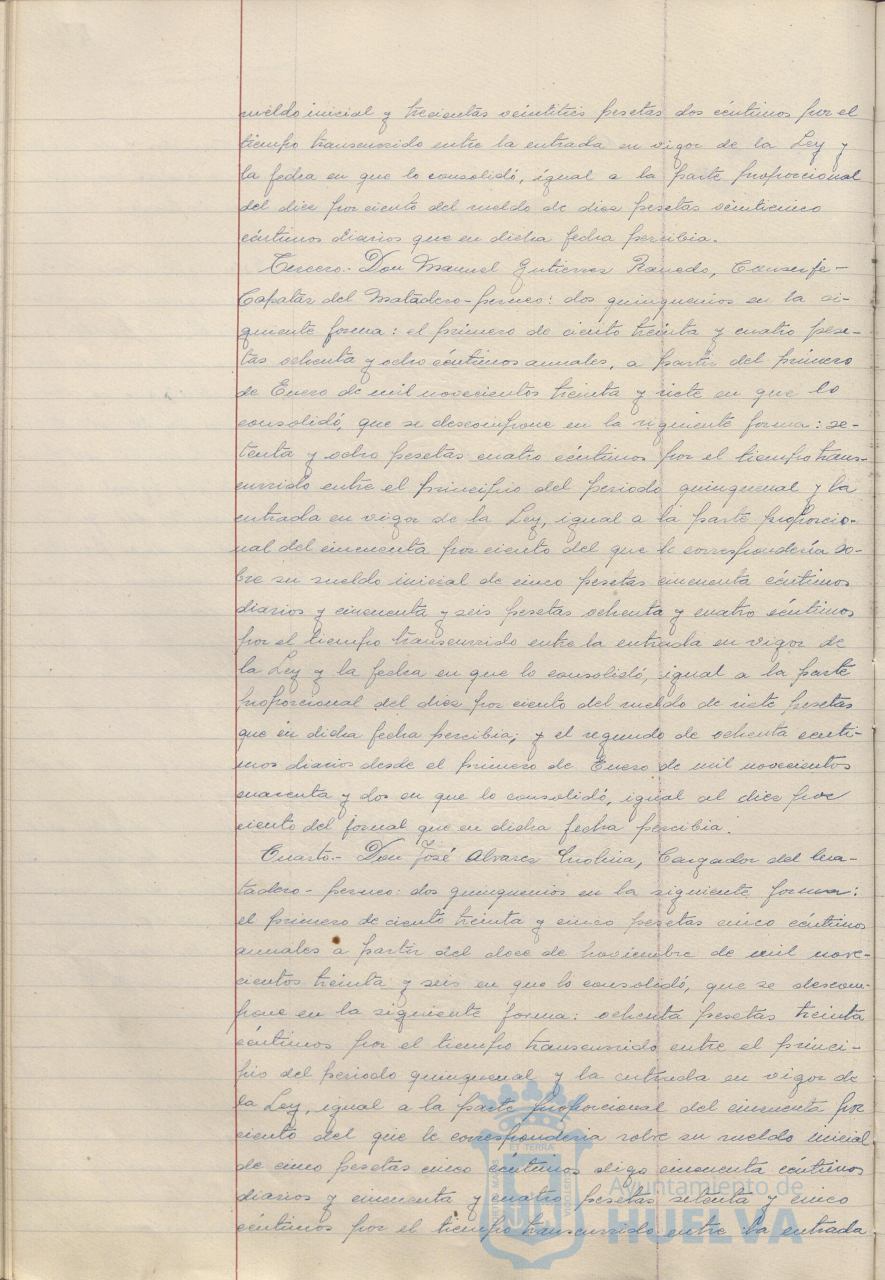 sueldo inicial y trecientas veintitrés pesetas dos céntimos por el
tiempo transcurrido entre la entrada en vigor de la Ley y
la fecha en que lo consolidó, igual a la parte proporcional
del diez por ciento del sueldo de diez pesetas veinticinco
céntimos diarios que en dicha fecha percibia.
Tercero.- Don Manuel Gutierrez Ranedo, Conserje-
Capataz del Matadero-perneo: dos quinquenios en la si-
guiente forma: el primero de ciento treinta y cuatro pese-
tas ochenta y ocho céntimos anuales, a partir del primero
de Enero de mil novecientos treinta y siete en que lo
consolidó, que se descompone en la siguiente forma: se-
tenta y ocho pesetas cuatro céntimos por el tiempo trans-
currido entre el principio del periodo quinquenal y la
entrada en vigor de la Ley, igual a la parte proporcio-
nal del cincuenta por ciento del que le correspondería so-
bre su sueldo inicial de cinco pesetas cincuenta céntimos
diarios y cincuenta y seis pesetas ochenta y cuatro céntimos
por el tiempo transcurrido entre la entrada en vigor de
la Ley y la fecha en que lo consolidó, igual a la parte
proporcional del diez por ciento del sueldo de siete pesetas
que en dicha fecha percibia; y el segundo de ochenta cénti-
mos diarios desde el primero de Enero de mil novecientos
cuarenta y dos en que lo consolidó, igual al diez por
ciento del jornal que en dicha fecha percibia.
Cuarto.- Don José Alvarez Molina, Cargador del Ma-
tadero-perneo: dos quinquenios en la siguiente forma:
el primero de ciento treinta y cinco pesetas cinco céntimos
anuales a partir del doce de Noviembre de mil nove-
cientos treinta y seis en que lo consolidó, que se descom-
pone en la siguiente forma: ochenta pesetas treinta
céntimos por el tiempo transcurrido entre el princi-
pio del periodo quinquenal y la entrada en vigor de
la Ley, igual a la parte proporcional del cincuenta por
ciento del que le correspondería sobre su sueldo inicial
de cinco pesetas cinco céntimos digo cincuenta céntimos
diarios y cincuenta y cuatro pesetas setenta y cinco
céntimos por el tiempo transcurrido entre la entrada
Ayuntamiento de
HUELVA